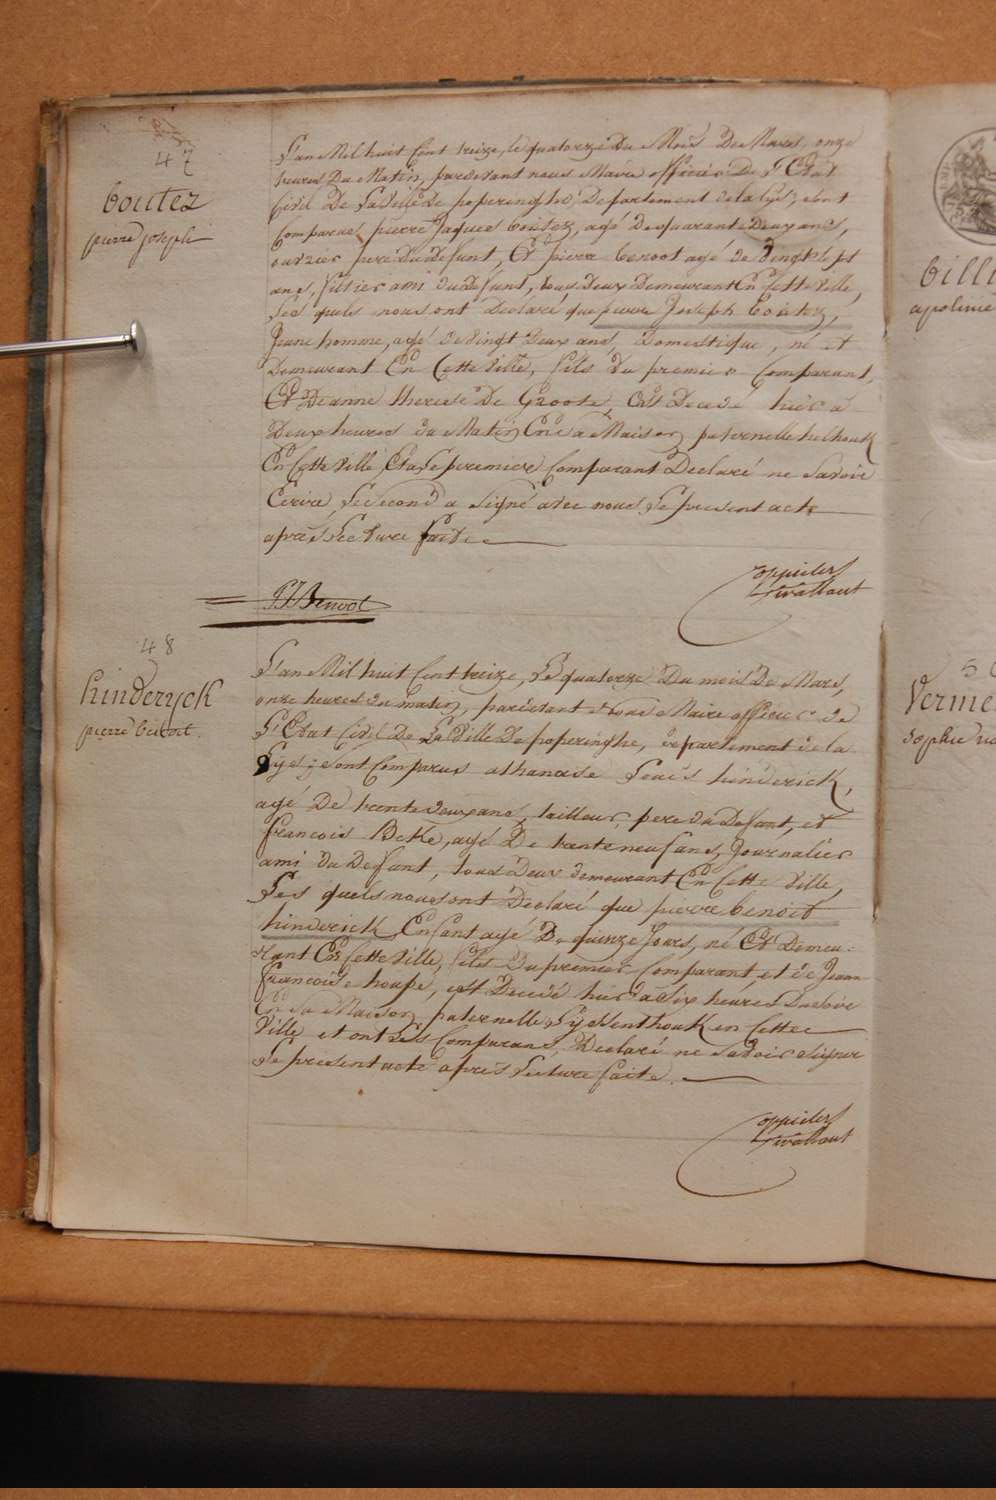 47
boutez
pierre joseph
L'an Mil huit Cent treize, le quatorze du Mois De Mars, onze
heures Du Matin, pardevant nous Maire officier De L'Etat
Civil De La Ville De poperinghe, Departement de la Lys, sont
Comparus pierre Jaques boutez, agé de quarante Deux ans,
ouvrier pere Du Defunt, Et pierre benoot agé de vingt sept
ans, ami du défunt, tous Deux Demeurant En Cette Ville,
Les quels nous ont Declaré que pierre Joseph boutez,
Jeune homme, agé de vingt Deux ans, Domestique, né et
Demeurant En Cette Ville, fils Du premier Comparant,
Et Deanne therese De Groote, Est Decedé hier à
Deux heures du Matin En sa Maison paternelle helhouk
En Cette Ville Et a Le premier Comparant Declaré ne Savoir
Ecrire, Le second a Signé avec nous Le present acte
après Lecture faite
PJ Benoot
48
hinderyck
pierre benoit.
L'an Mil huit Cent treize, Le quatorze Du mois De Mars,
onze heures du matin, pardevant nous Maire officier de
L'Etat Civil De La Ville De poperinghe, departement de la
Lys, sont Comparus athanase Louis hinderick,
agé De trente deux ans, tailleur, pere du Defunt, et
francois Beke, agé De trente neuf ans, Journalier
ami du Defunt, tous Deux demeurant En Cette Ville,
Les quels nous ont Declaré que pierre benoit
hinderick Enfant agé De quinze Jours, né Et Demeu-
rant En Cette Ville, fils Du premier Comparant, et de Jeanne
francoise houpe, est Decedé hier à Six heures Du Soir
En Sa Maison paternelle Sydenthouk en Cette
Ville et ont Les Comparans, Declaré ne Savoir Signer
Le present acte après Lecture faite.
billi
apolinie
Verme
Sophie